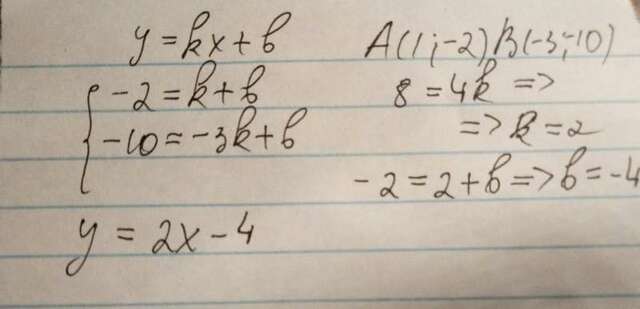 y = kx + b
A(1;-2) B(-3;-10)
-2 = k + b
-10 = -3k + b
8 = 4k =>
=> k = 2
-2 = 2 + b => b = -4
y = 2x - 4